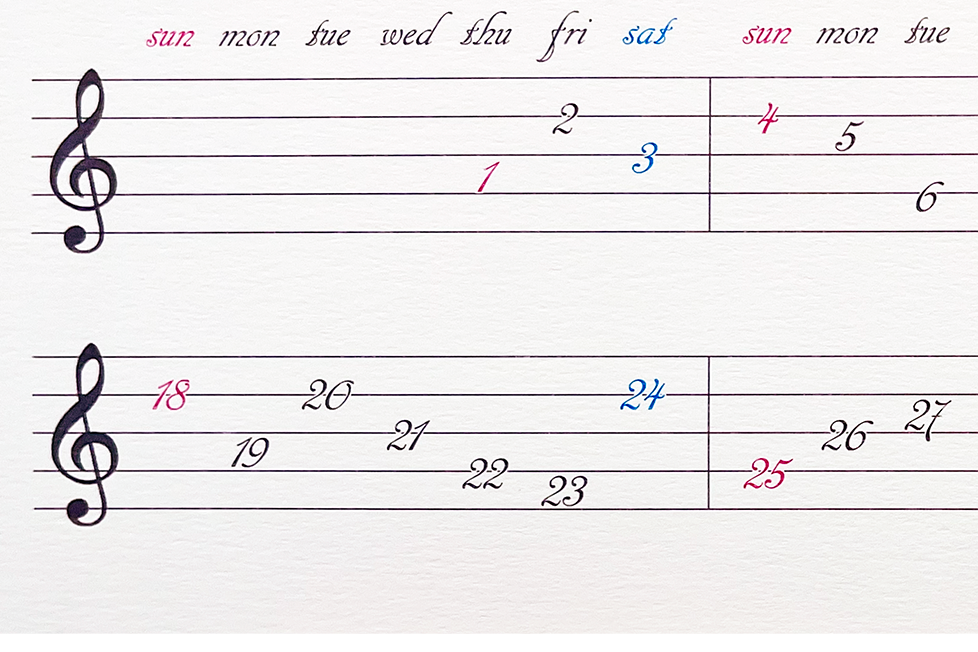 sun mon tue wed thu fri sat sun mon tue
1 2 3 4 5 6
18 19 20 21 22 23 24 25 26 27